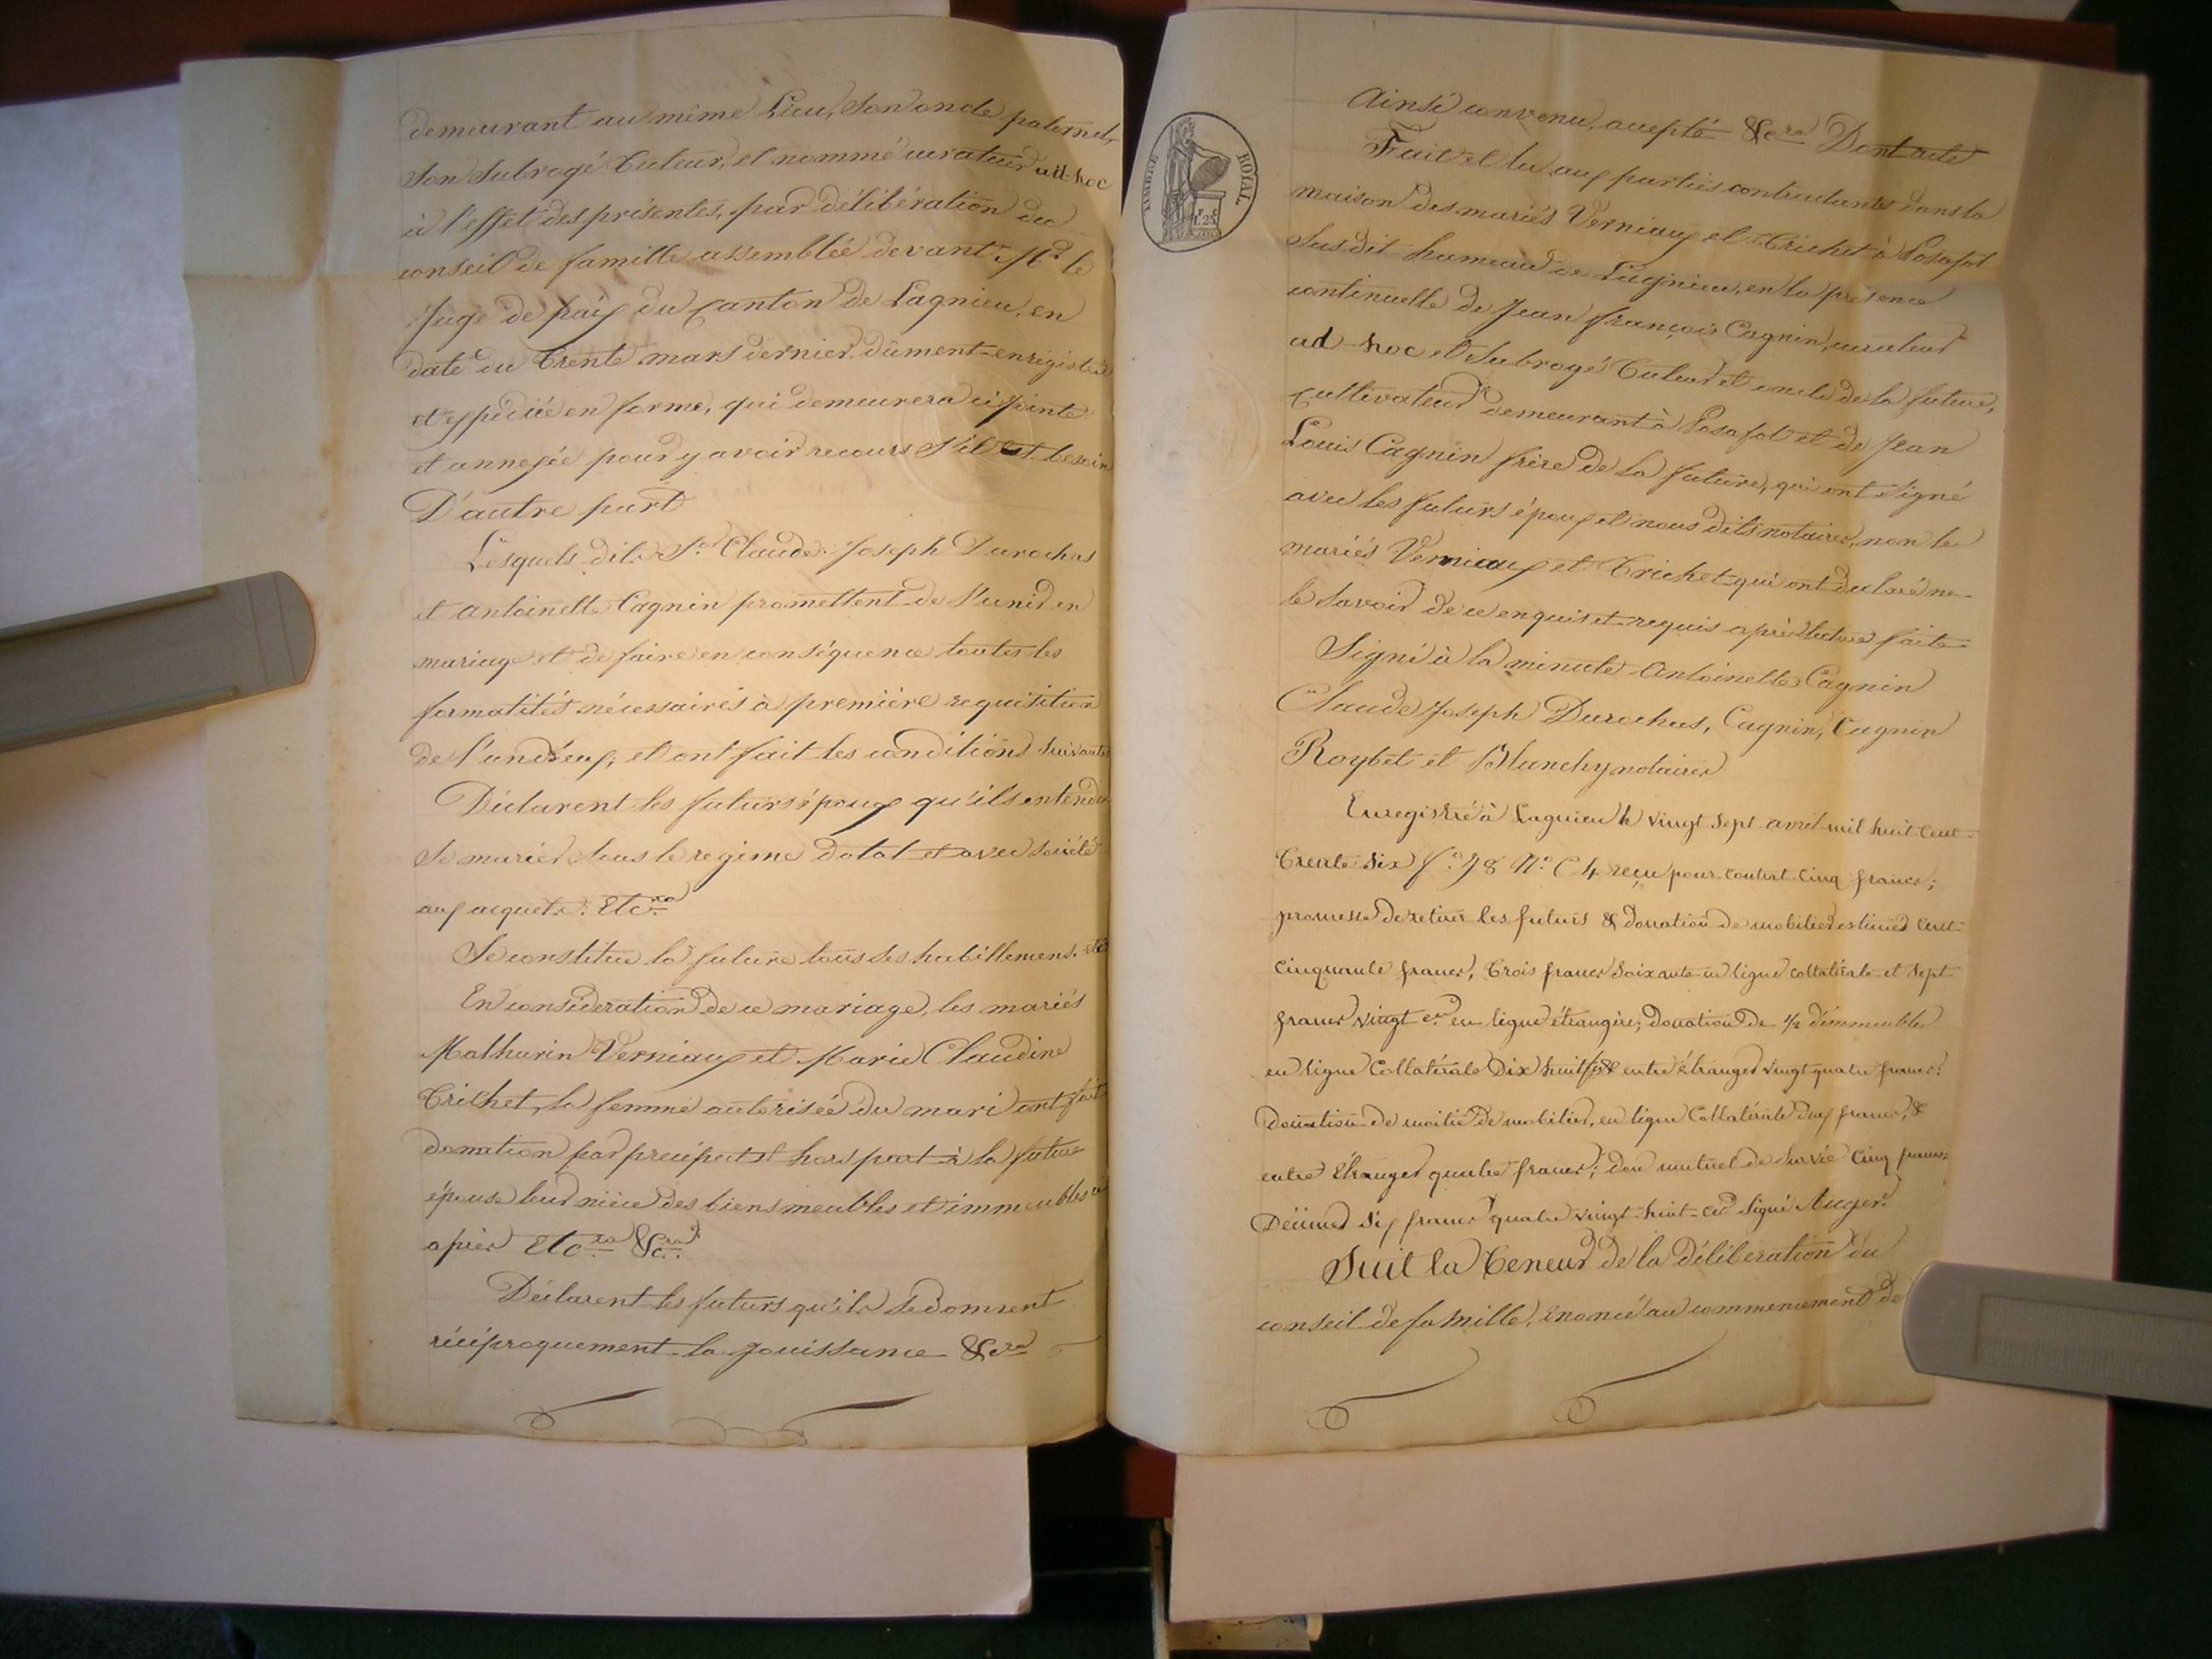 demeurant au même Lieu, Son oncle paternel,
Son Subrogé tuteur, et nommé curateur ad-hoc
à l'effet des présentes, par délibération du
conseil de famille assemblée devant Mr. le
Juge de paix du Canton de Lagnieu, en
date du trente mars dernier dûment enregistrée
et expédiée en forme, qui demeurera ci jointe
et annexée pour y avoir recours S'il est besoin
D'autre part
Lesquels dits Sr. Claude Joseph Durochas
et Antoinette Cagnin promettent de S'unir en
mariage et de faire en conséquence toutes les
formalités nécessaires à première requisition
de l'un d'eux; et ont fait les conditions Suivantes
Déclarent les futurs époux qu'ils entendent
Se marier Sous le regime dotal et avec Société
aux acquets. Etc.ra
Se constitue la future tous Ses habillemens. etc
En considération de ce mariage, les mariés
Mathurin Verniaux et Marie Claudine
Trichet, la femme autorisée du mari ont fait
donation par preciput et hors part à la future
épouse leur nièce des biens meubles et immeubles ci
après Etc.ra &c.ra
Déclarent les futurs qu'ils Se donnent
réciproquement la Jouissance &c.ra
TIMBRE ROYAL
Ainsi convenu, accepté &c.ra Dont acte
Fait et lu aux parties contractantes dans la
maison des mariés Verniaux et Trichet à Posafol
Susdit hameau de Lagnieu, en la présence
continuelle de Jean François Cagnin, curateur
ad-hoc et Subrogé Tuteur et oncle de la future,
Cultivateur demeurant à Posafol et de Jean
Louis Cagnin frère de la future, qui ont Signé
avec les futurs époux et nous dits notaires, non les
mariés Verniaux et Trichet qui ont déclaré ne
le Savoir de ce enquis et requis après lecture faite
Signé à la minute Antoinette Cagnin
Claude Joseph Durochas, Cagnin, Cagnin
Roybet et Blanchy notaires
Enregistré à Lagnieu le vingt Sept avril mil huit cent
Trente Six f.o 78 N.o C 4 reçu pour contrat Cinq francs;
promesse de retirer les futurs & donation de mobilier estimé cent
Cinquante francs, Trois francs Soixante en ligne collatérale et Sept
francs vingt c. en ligne étrangère; Donation de 1/2 d'immeubles
en ligne Collatérale Dix huit f & entre étrangers vingt quatre francs;
Donation de moitié de mobilier, en ligne Collatérale deux francs, &
entre étranger quatre francs; don mutuel de Survie Cinq francs;
Décimes Six francs quatre vingt-huit c. Signé Auger.
Suit la teneur de la délibération du
conseil de famille, énoncé au commencement de